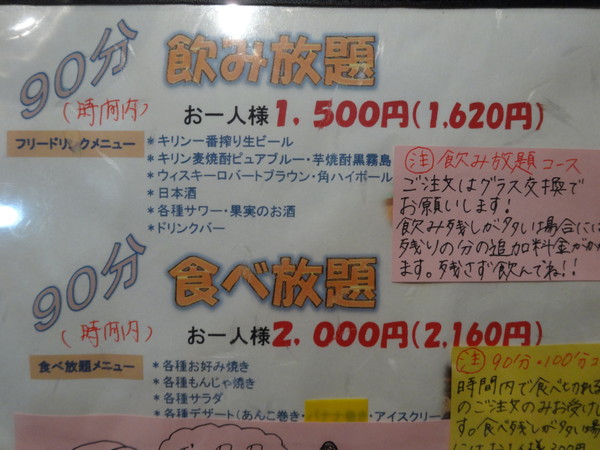 90分 飲み放題
(時間内)
お一人様1,500円(1,620円)
フリードリンクメニュー
*キリン一番搾り生ビール
*キリン麦焼酎ピュアブルー・芋焼酎黒霧島
*ウィスキーロバートブラウン・角ハイボール
*日本酒
*各種サワー・果実のお酒
*ドリンクバー
注 飲み放題コース
ご注文はグラス交換で
お願いします!
飲み残しが多い場合には
残りの分の追加料金がかか
ます。残さず飲んでね!!
90分 食べ放題
(時間内)
お一人様2,000円(2,160円)
食べ放題メニュー
*各種お好み焼き
*各種もんじゃ焼き
*各種サラダ
*各種デザート(あんこ巻き・バナナ巻き・アイスクリー
注 90分・100分コ
時間内で食べきれる
のご注文のみお受けし
す。食べ残しが多い場